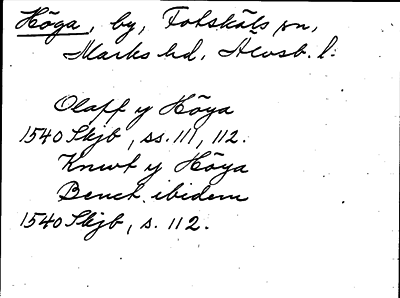 Höga, by, Fotskäls sn,
Marks hd, Älvsb. l.
Olaff y Höga
1540 Skjb, ss. 111, 112.
Knwt y Höga
Benct ibidem
1540 Skjb, s. 112.